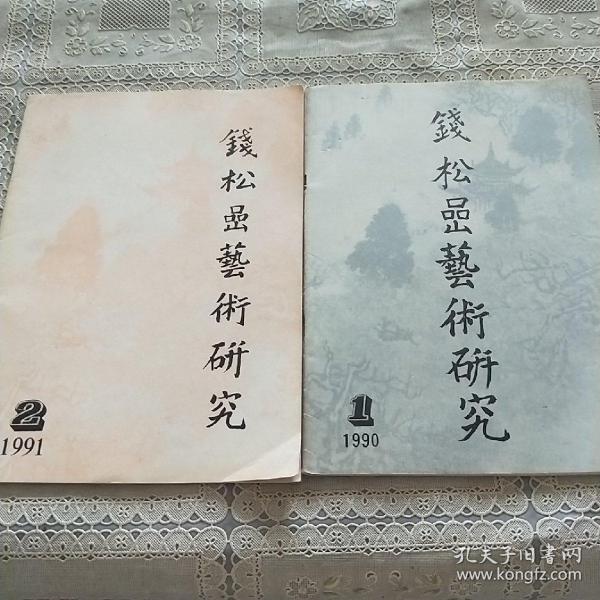 錢松嵒藝術研究
2
1991
錢松嵒藝術研究
1
1990
孔夫子旧书网
www.kongfz.com